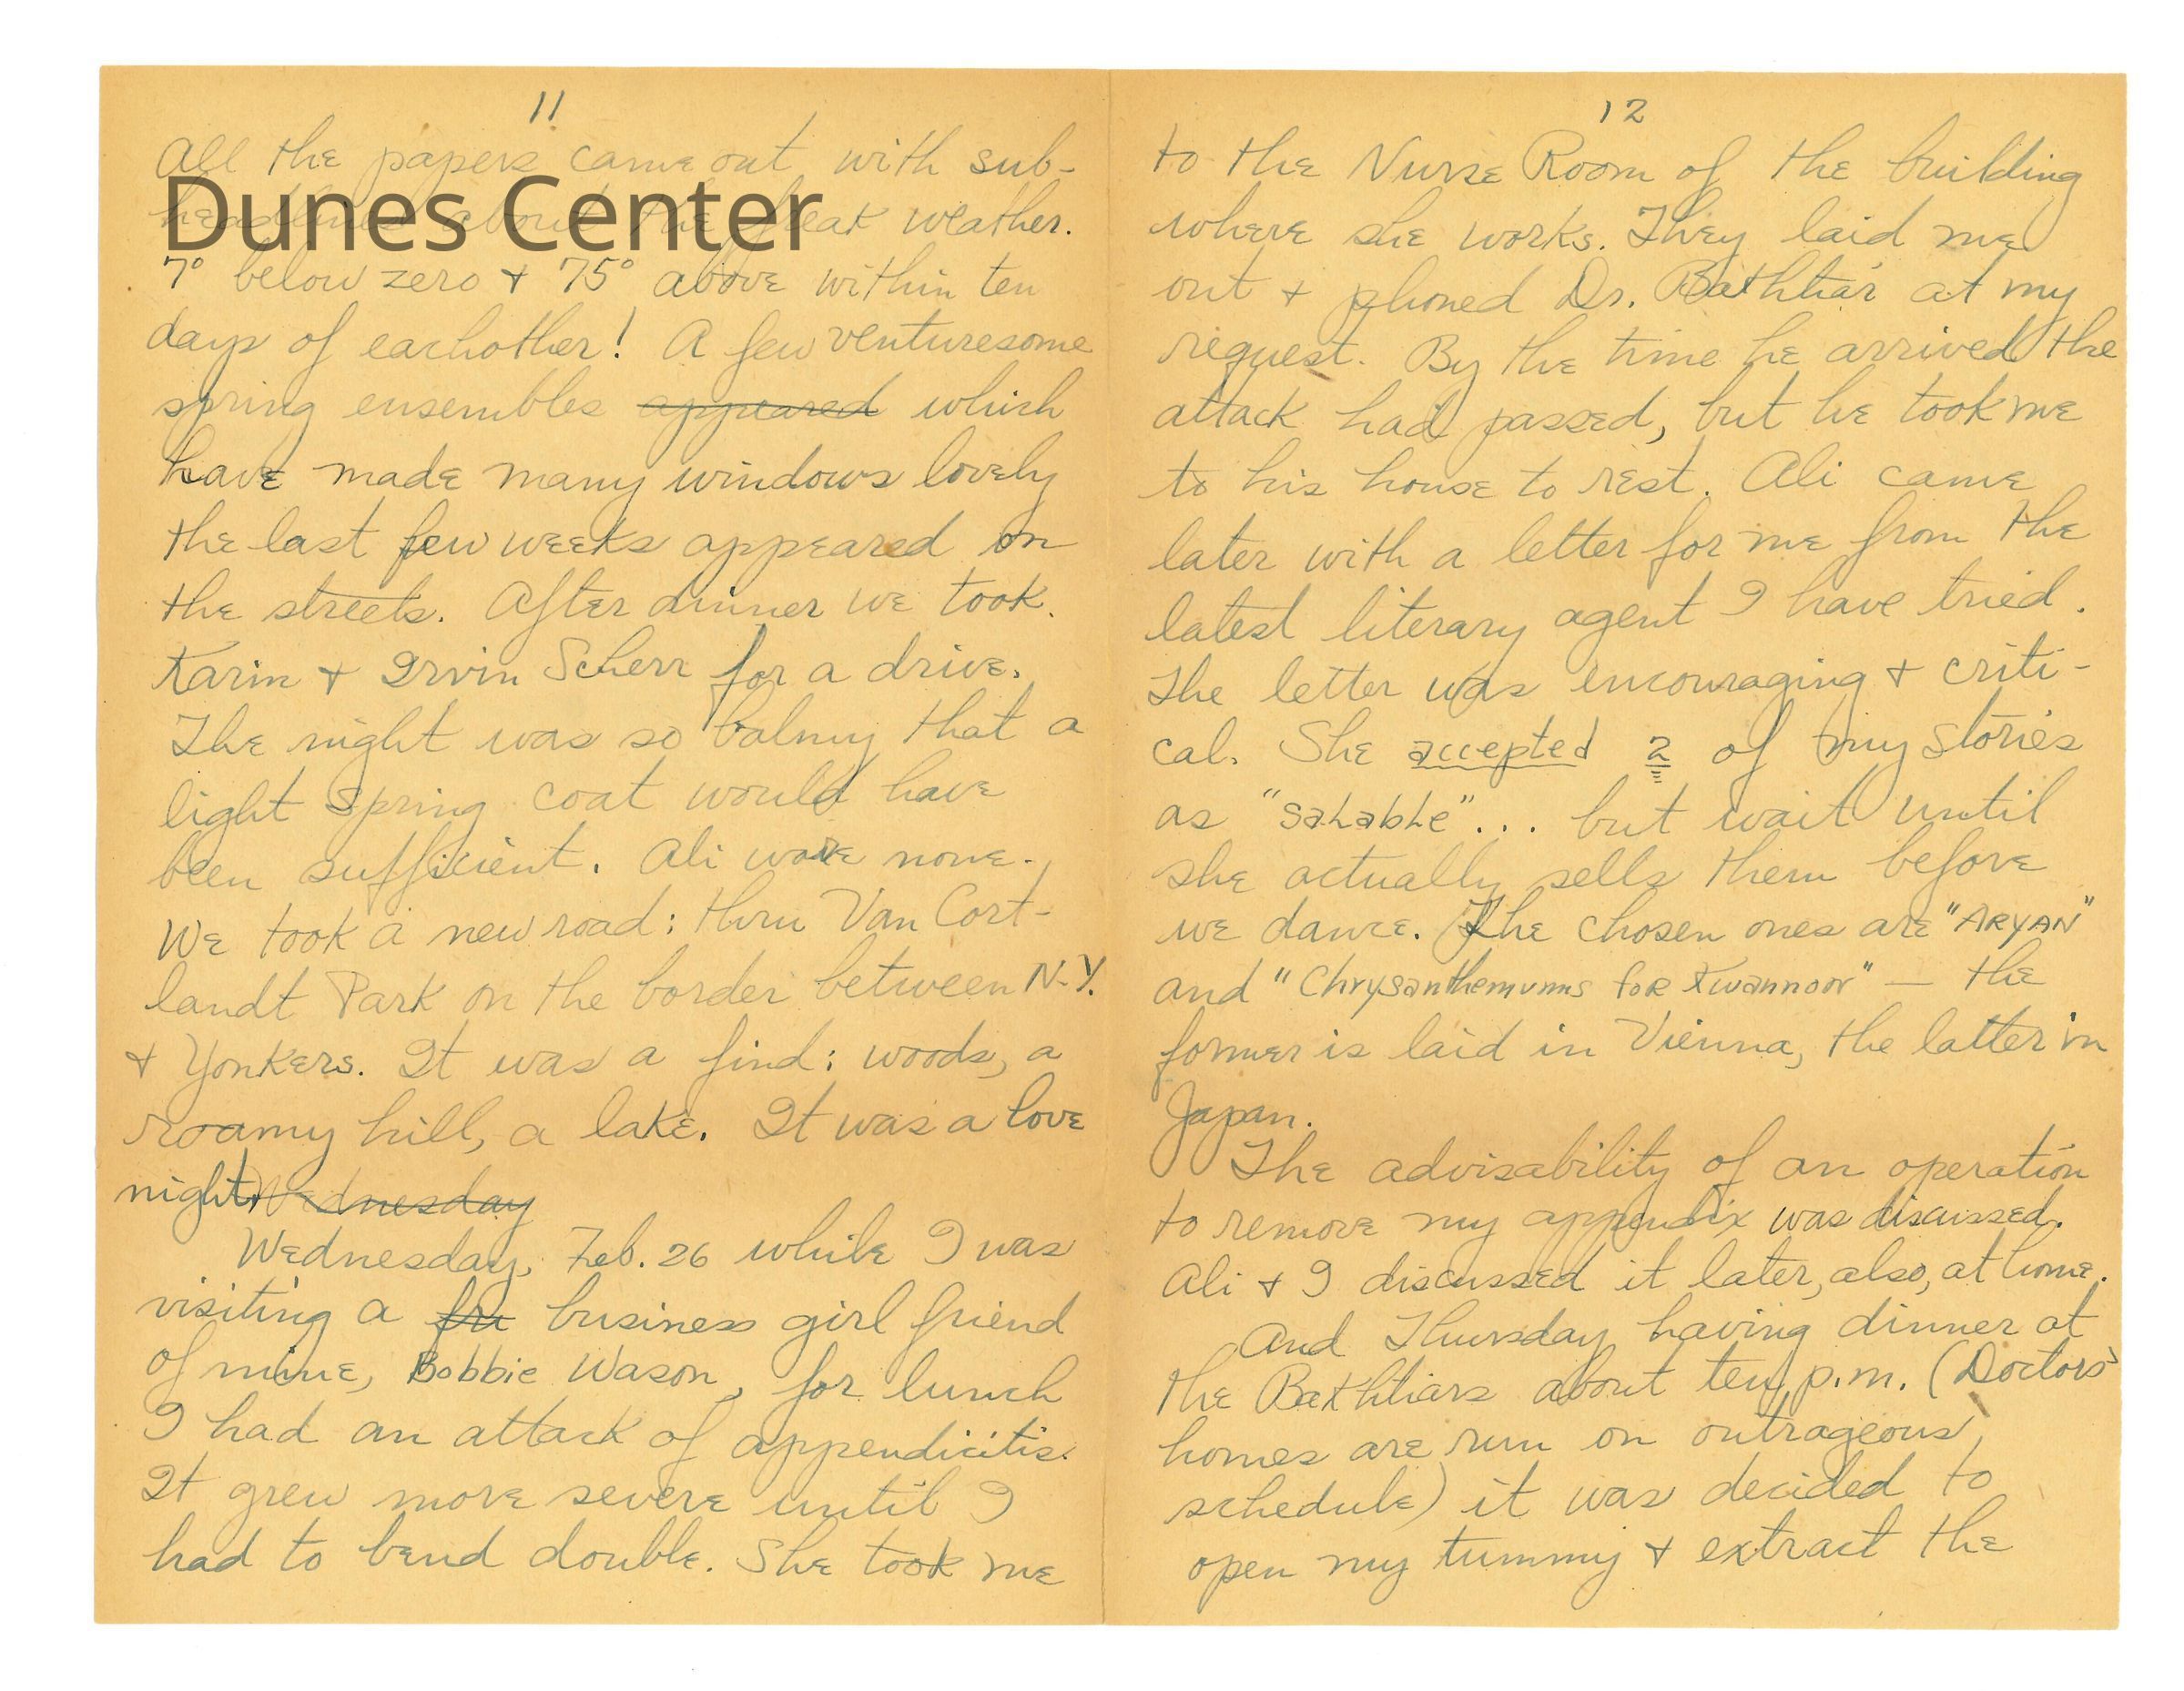 11
All the papers came out with sub-
Dunes Center
headlines about the freak weather.
7° below zero + 75° above within ten
days of eachother! A few venturesome
spring ensembles appeared which
have made many windows lovely
the last few weeks appeared on
the streets. After dinner we took
Karin + Irvin Scherr for a drive.
The night was so balmy that a
light spring coat would have
been sufficient. Ali wore none.
We took a new road: thru Van Cort-
landt Park on the border between N.Y.
+ Yonkers. It was a find: woods, a
roamy hill, a lake. It was a love
night. Wednesday
Wednesday, Feb. 26 while I was
visiting a fri business girl friend
of mine, Bobbie Wason, for lunch
I had an attack of appendicitis.
It grew more severe until I
had to bend double. She took me
12
to the Nurse Room of the building
where she works. They laid me
out + phoned Dr. Bakhtiar at my
request. By the time he arrived the
attack had passed, but he took me
to his house to rest. Ali came
later with a letter for me from the
latest literary agent I have tried.
The letter was encouraging + criti-
cal. She accepted 2 of my stories
as "salable"... but wait until
she actually sells them before
we dance. The chosen ones are "ARYAN"
and "Chrysanthemums for Kwannon" — the
former is laid in Vienna, the latter in
Japan.
The advisability of an operation
to remove my appendix was discussed.
Ali + I discussed it later, also, at home.
And Thursday having dinner at
the Bakhtiars about ten p.m. (Doctors'
homes are run on outrageous
schedule) it was decided to
open my tummy + extract the